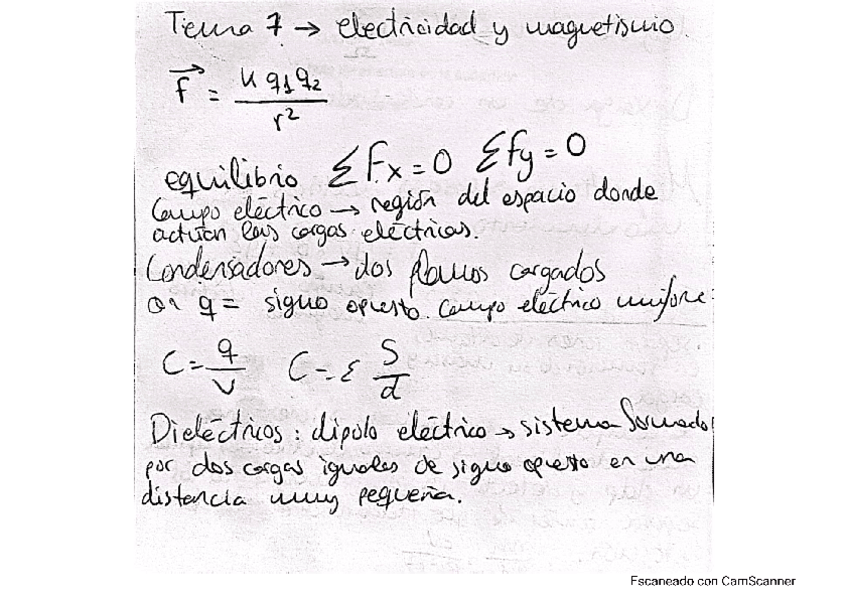 Tema 7 → electricidad y magnetismo.
f⃗ = K q1 q2 / r²
equilibrio ΣFx = 0 Σfy = 0
Campo eléctrico → región del espacio donde
actúan las cargas eléctricas.
Condensadores → dos planos cargados
con q = signo opuesto. Campo eléctrico uniforme
C = q/V C = ε S/d
Dieléctricos: dipolo eléctrico → sistema formado
por dos cargas iguales de signo opuesto en una
distancia muy pequeña.
Escaneado con CamScanner